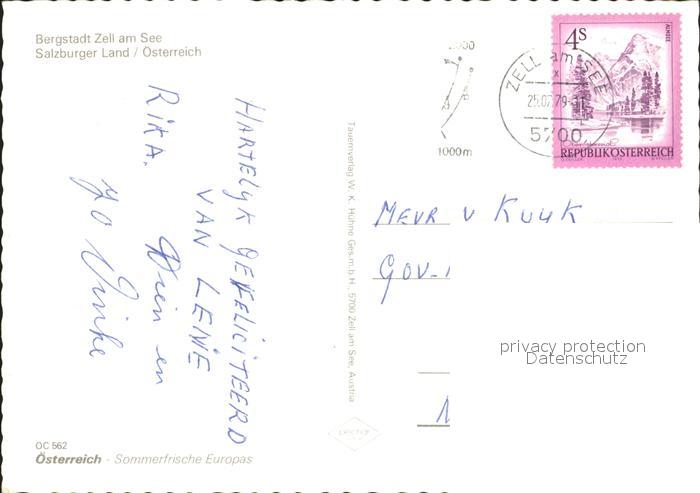 Bergstadt Zell am See
Salzburger Land / Österreich
HARTELYK GEFELICITEERD
VAN LENIE
RIKA.
Dien en
Jo Vinke
Tauernverlag W. K. Hühne Ges.m.b.H., 5700 Zell am See, Austria
2000
1000m
ZELL am SEE
25.07.79-11
5700
4S
ALMSEE
REPUBLIK ÖSTERREICH
MEVR V KUYK
GOV-
1
privacy protection
Datenschutz
OC 562
Österreich - Sommerfrische Europas